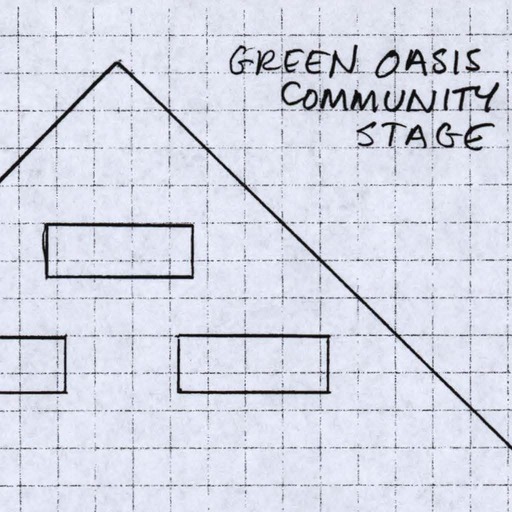 GREEN OASIS
COMMUNITY
STAGE